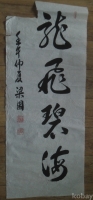 龍飛碧海
壬午仲夏 梁國